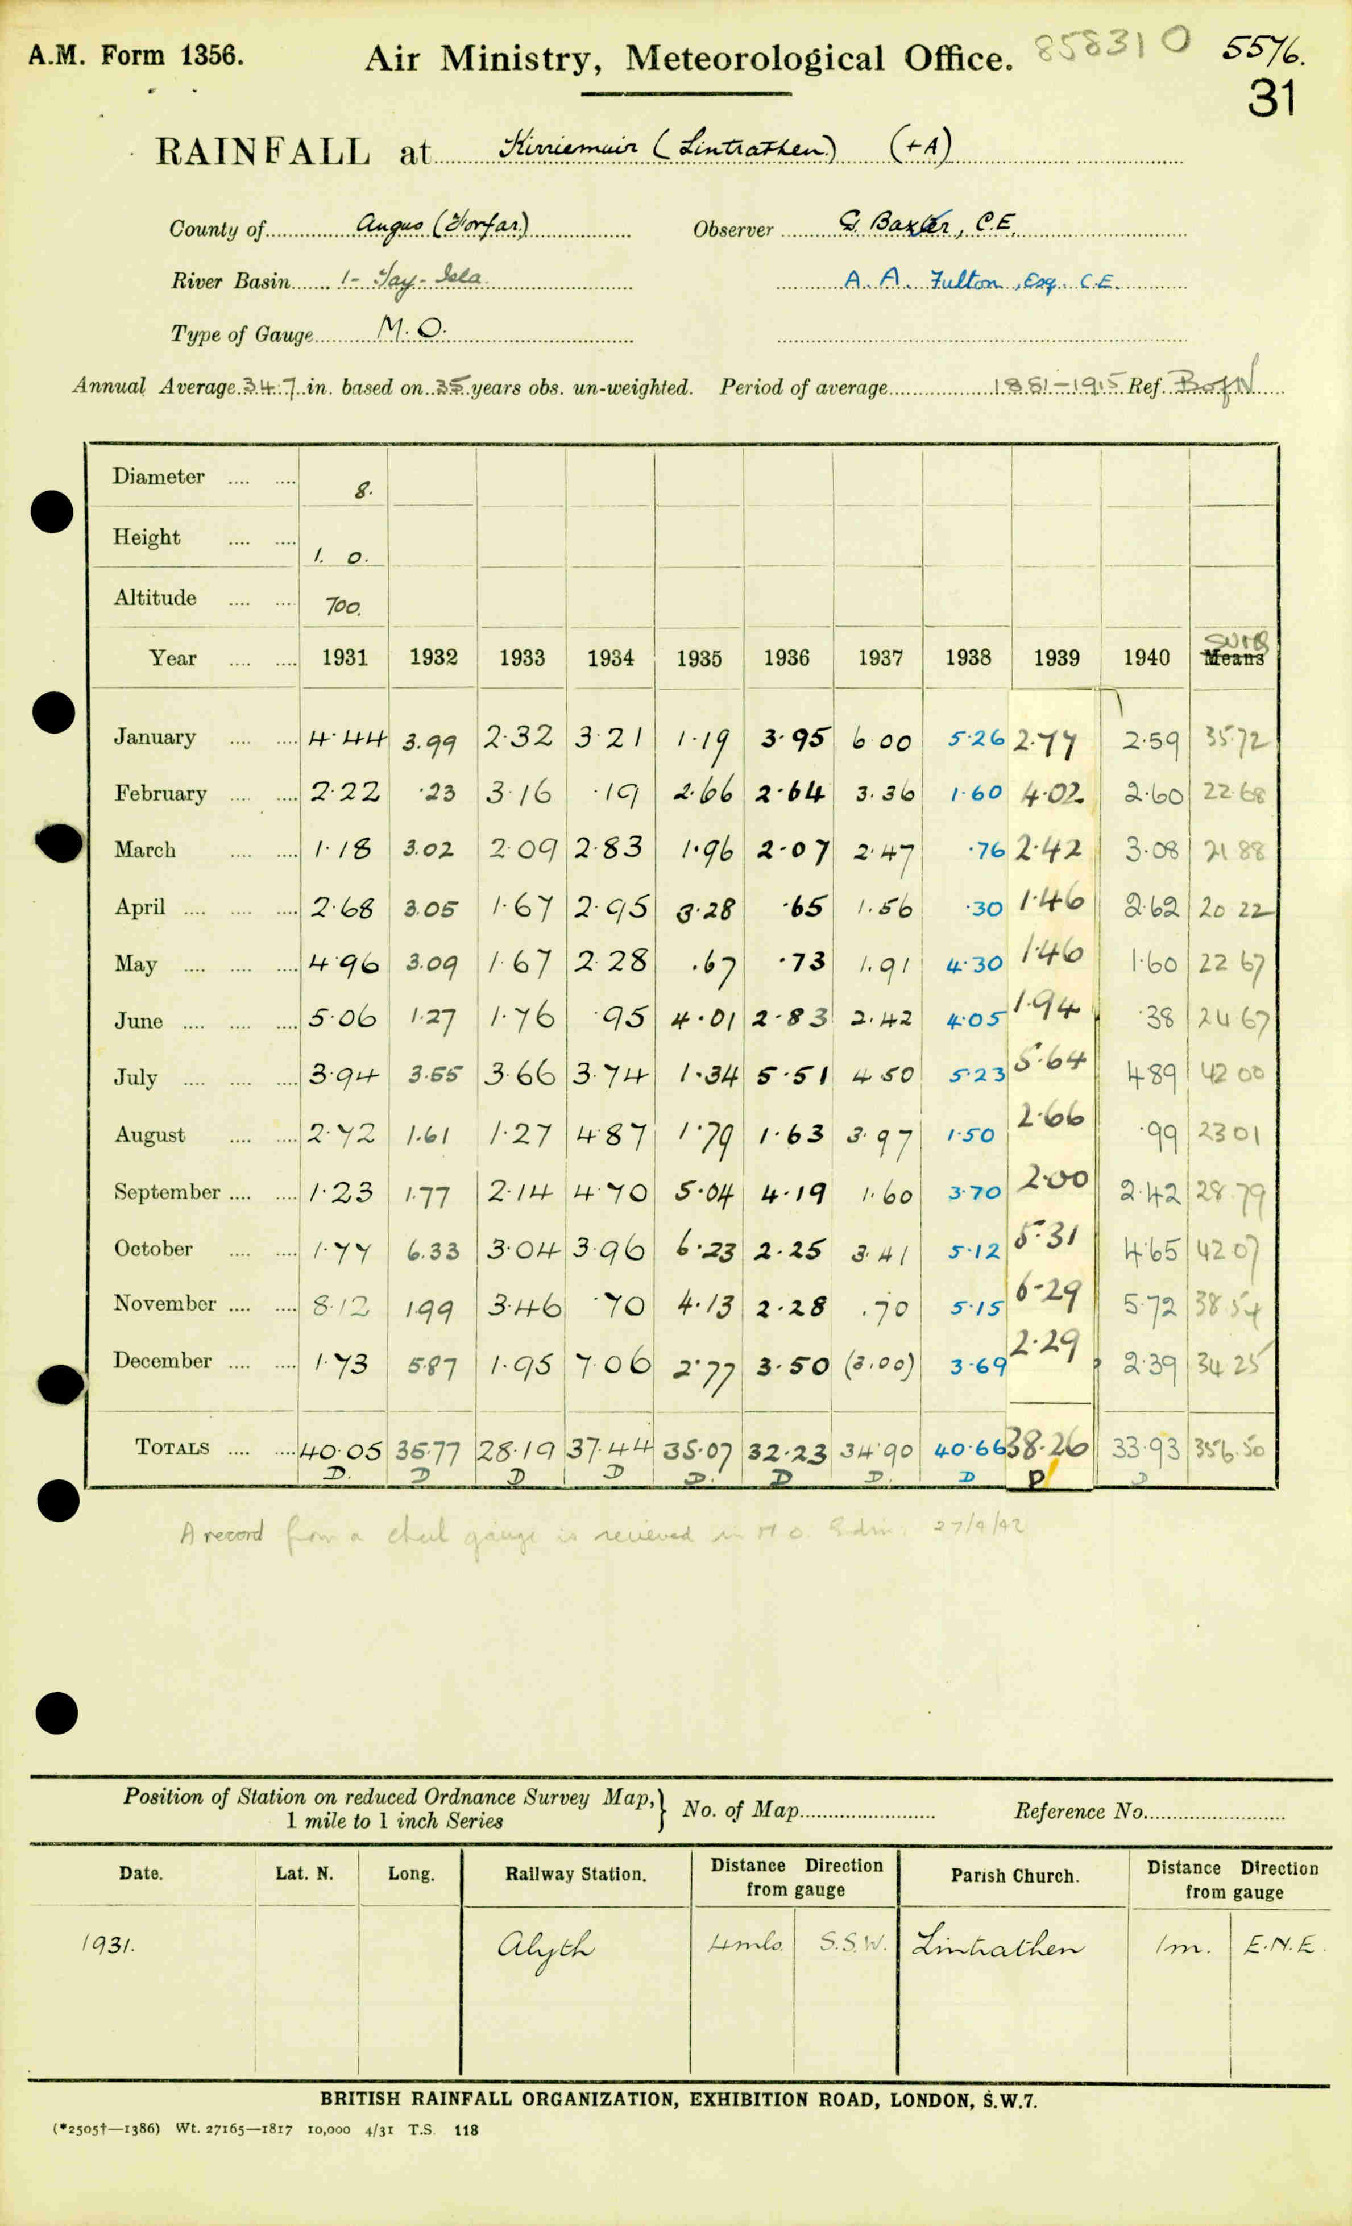 A.M. Form 1356.
Air Ministry, Meteorological Office. 858310 5576.
31
RAINFALL at Kirriemuir (Lintrathen) (+A)
County of Angus (Forfar) Observer G. Baxter, C.E.
River Basin 1- Tay - Isla A. A. Fulton, Esq. C.E.
Type of Gauge M.O.
Annual Average 34.7 in. based on 35 years obs. un-weighted. Period of average 1881-1915 Ref. B of N
Diameter 8.
Height 1. 0.
Altitude 700.
Sums
Year 1931 1932 1933 1934 1935 1936 1937 1938 1939 1940 Means
January 4.44 3.99 2.32 3.21 1.19 3.95 6.00 5.26 2.77 2.59 35.72
February 2.22 .23 3.16 .19 2.66 2.64 3.36 1.60 4.02 2.60 22.68
March 1.18 3.02 2.09 2.83 1.96 2.07 2.47 .76 2.42 3.08 21.88
April 2.68 3.05 1.67 2.95 3.28 .65 1.56 .30 1.46 2.62 20.22
May 4.96 3.09 1.67 2.28 .67 .73 1.91 4.30 1.46 1.60 22.67
June 5.06 1.27 1.76 .95 4.01 2.83 2.42 4.05 1.94 .38 24.67
July 3.94 3.55 3.66 3.74 1.34 5.51 4.50 5.23 5.64 4.89 42.00
August 2.72 1.61 1.27 4.87 1.79 1.63 3.97 1.50 2.66 .99 23.01
September 1.23 1.77 2.14 4.70 5.04 4.19 1.60 3.70 2.00 2.42 28.79
October 1.77 6.33 3.04 3.96 6.23 2.25 3.41 5.12 5.31 4.65 42.07
November 8.12 1.99 3.46 .70 4.13 2.28 .70 5.15 6.29 5.72 38.54
December 1.73 5.87 1.95 7.06 2.77 3.50 (3.00) 3.69 2.29 2.39 34.25
TOTALS 40.05 35.77 28.19 37.44 35.07 32.23 34.90 40.66 38.26 33.93 356.50
D. D D D D. D D. D D D
A record from a check gauge is received in M.O. Edin. 27/9/42
Position of Station on reduced Ordnance Survey Map, 1 mile to 1 inch Series } No. of Map Reference No.
Date. Lat. N. Long. Railway Station. Distance Direction from gauge Parish Church. Distance Direction from gauge
1931. Alyth 4 mls S.S.W. Lintrathen 1 m. E.N.E.
BRITISH RAINFALL ORGANIZATION, EXHIBITION ROAD, LONDON, S.W.7.
(*2505†—1386) Wt. 27165—1817 10,000 4/31 T.S. 118